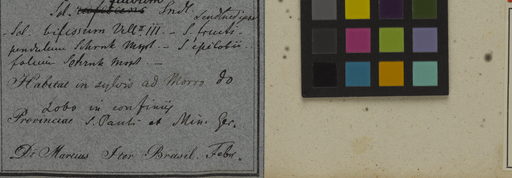 Sol. Sendt.
Sol. bifissum Vell. III. — S. fruti-
pendulum Schrnk Mspt. — S. epilobii-
folium Schrnk mss. —
Habitat in sylvis ad Morro do
Lobo in confiniis
Provinciae S. Pauli et Min. Ger.
Dr Martius Iter Brasil. Febr.